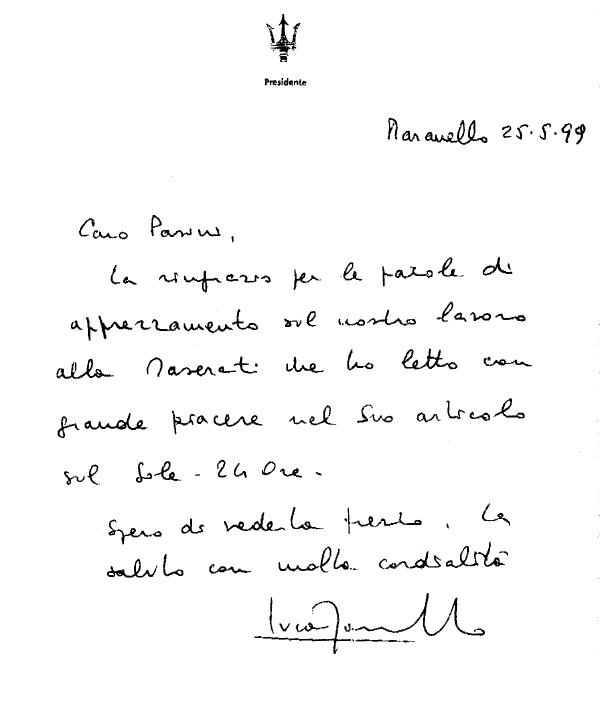 Presidente
Maranello 25.5.99
Caro Panini,
La ringrazio per le parole di
apprezzamento sul nostro lavoro
alla Maserati che ho letto con
grande piacere nel Suo articolo
sul Sole-24 Ore.
Spero di vederla presto. La
saluto con molta cordialità